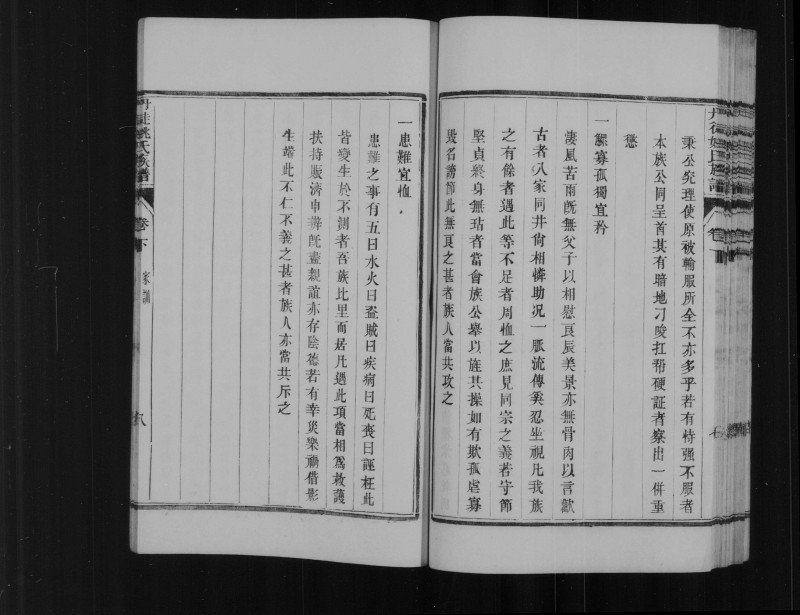 秉公究理使原被輸服所全不亦多乎若有恃强不服者
本族公同呈首其有暗地刁唆扛帮硬証者察出一併重
懲
一鰥寡孤獨宜矜
淒風苦雨旣無父子以相慰良辰美景亦無骨肉以言歡
古者八家同井尙相憐助况一脈流傳奚忍坐視凡我族
之有餘者遇此等不足者周恤之庶見同宗之義若守節
堅貞終身無玷者當會族公舉以旌其操如有欺孤虐寡
毁名謗節此無良之甚者族人當共攻之
一患難宜恤
患難之事有五曰水火曰盜賊曰疾病曰死喪曰誣枉此
皆變生於不測者吾族比里而居凡遇此項當相爲救護
扶持賑濟申辯旣盡親誼亦存陰德若有幸災樂禍借影
生端此不仁不義之甚者族人亦當共斥之
丹徒姚氏族譜
卷下
家訓
八
丹徒姚氏族譜
卷
七